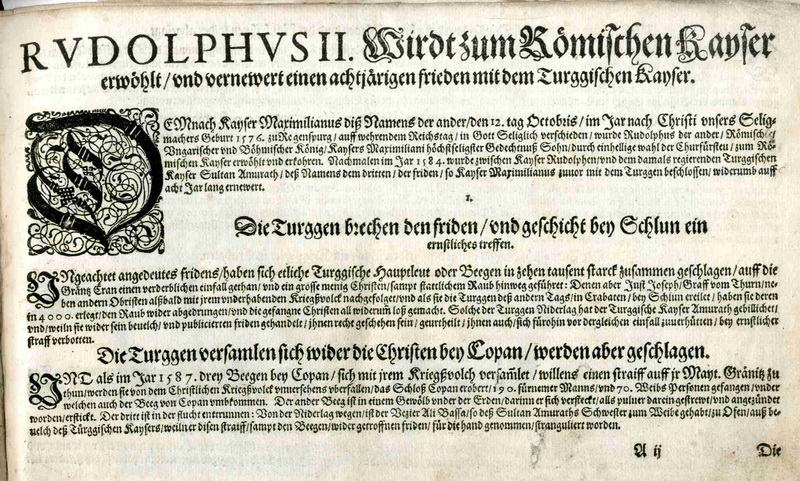 RVDOLPHVS II. Wirdt zum Römischen Kayser
erwöhlt/ vnd vernewert einen achtjärigen frieden mit dem Turggischen Kayser.
DEMnach Kayser Maximilianus diß Namens der ander/ den 12. tag Octobris/ im Jar nach Christi vnsers Selig-
machers Geburt 1576. zu Regenspurg/ auff wehrendem Reichstag/ in Gott Seliglich verschieden/ wurde Rudolphus der ander/ Römischer/
Vngarischer vnd Böhmischer König/ Kaysers Maximiliani höchstseligster Gedechtnuß Sohn/ durch einhellige wahl der Churfürsten/ zum Rö-
mischen Kayser erwöhlt vnd erkohren. Nachmalen im Jar 1584. wurde zwischen Kayser Rudolphen/ vnd dem damals regierenden Turggischen
Kayser Sultan Amurath/ deß Namens dem dritten/ der friden/ so Kayser Maximilianus zuuor mit dem Turggen beschlossen/ widerumb auff
acht Jar lang ernewert.
1.
Die Turggen brechen den friden/ vnd geschicht bey Schlun ein
ernstliches treffen.
UNgeachtet angedeutes fridens/ haben sich etliche Turggische Hauptleut oder Beegen in zehen tausent starck zusammen geschlagen/ auff die
Gräntz Cran einen verderblichen einfall gethan/ vnd ein grosse menig Christen/ sampt stattlichem Raub hinweg geführet: Denen aber Just Joseph/ Graff vom Thurn/ ne-
ben andern Obristen alßbald mit jrem vnderhabenden Kriegßvolck nachgefolget/ vnd als sie die Turggen deß andern Tags/ in Crabaten/ bey Schlun ereilet/ haben sie deren
in 4000. erlegt/ den Raub wider abgedrungen/ vnd die gefangne Christen all widerum loß gemacht. Solche der Turggen Niderlag hat der Turggische Kayser Amurath gebillichet/
vnd/ weiln sie wider sein beuelch/ vnd publicierten friden gehandelt/ jhnen recht geschehen sein/ geurtheilt/ jhnen auch/ sich fürohin vor dergleichen einfall zuuerhütten/ bey ernstlicher
straff verbotten.
Die Turggen versamlen sich wider die Christen bey Copan/ werden aber geschlagen.
UND als im Jar 1587. drey Beegen bey Copan/ sich mit jrem Kriegßvolck versamlet/ willens einen straiff auff jr Mayt. Gränitz zu
thun/ werden sie von dem Christlichen Kriegßvolck vnuersehens vberfallen/ das Schloß Copan erobert/ 190. fürnemer Manns/ vnd 70. Weibs Personen gefangen/ vnder
welchen auch der Beeg von Copan vmbkommen. Der ander Beeg ist in einem Gewölb vnder der Erden/ darinn er sich versteckt/ als puluer darein gestrewt/ vnd angezündt
worden/ erstickt. Der drit ist in der flucht entrunnen: Von der Niderlag wegen/ ist der Vezier Ali Bassa/ so deß Sultan Amuraths Schwester zum Weibe gehabt/ zu Ofen/ auß be-
uelch deß Türggischen Kaysers/ weil ner disen straiff/ sampt den Beegen/ wider getroffnen friden/ für die hand genommen/ stranguliert worden.
A ij
Die